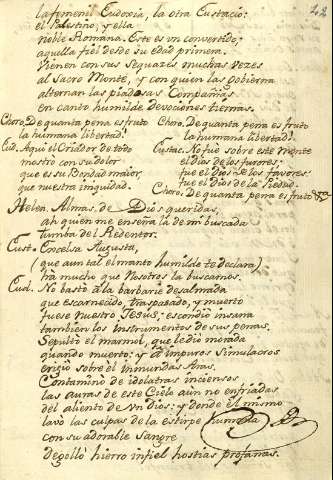 22
la fomenil Eudoxia, la otra Eustacio:
el Palatino, y ella
noble Romana. Este es un convertido;
aquella fiel desde su edad primera.
Vienen con sus Seguazes muchas vezes
al Sacro Monte, y con quien las gobierna
alternan las piadosas Compañas
en canto humilde devociones tiernas.
Choro. De quanta pena es fruto
la humana libertad!
Eud. Aquí el Criador de todo
mostro con su dolor
que es su Bondad maior
que nuestra iniquidad.
Choro. De quanta pena es fruto
la humana libertad!
Eustac. No fué sobre este Monte
el dia de los furores;
fue el Dios de los favores;
fue el Dios de la Piedad.
Choro. De quanta pena es fruto &a
Helen. Almas, de Dios queridas,
ah quien me enseña la de mi buscada
Tumba del Redentor.
Eust. Excelsa Augusta,
(que aun tal el manto humilde te declara)
ha mucho que Nosotros la buscamos.
Eud. No bastó a la barbarie desalmada
que escarnecido, traspasado, y muerto
fuese nuestro Jesus; escondio insana
tambien los Instrumentos de sus penas.
Sepultó el marmol, que le dio morada
quando muerto: y a impuros simulacros
erigió sobre él inmundas Aras.
Contaminó de idolatras inciensos
las auras de este Cielo aun no enfriadas
del aliento de un Dios: y donde el mismo
lavó las culpas de la estirpe humana
con su adorable Sangre
degolló hierro infiel hostias profanas.